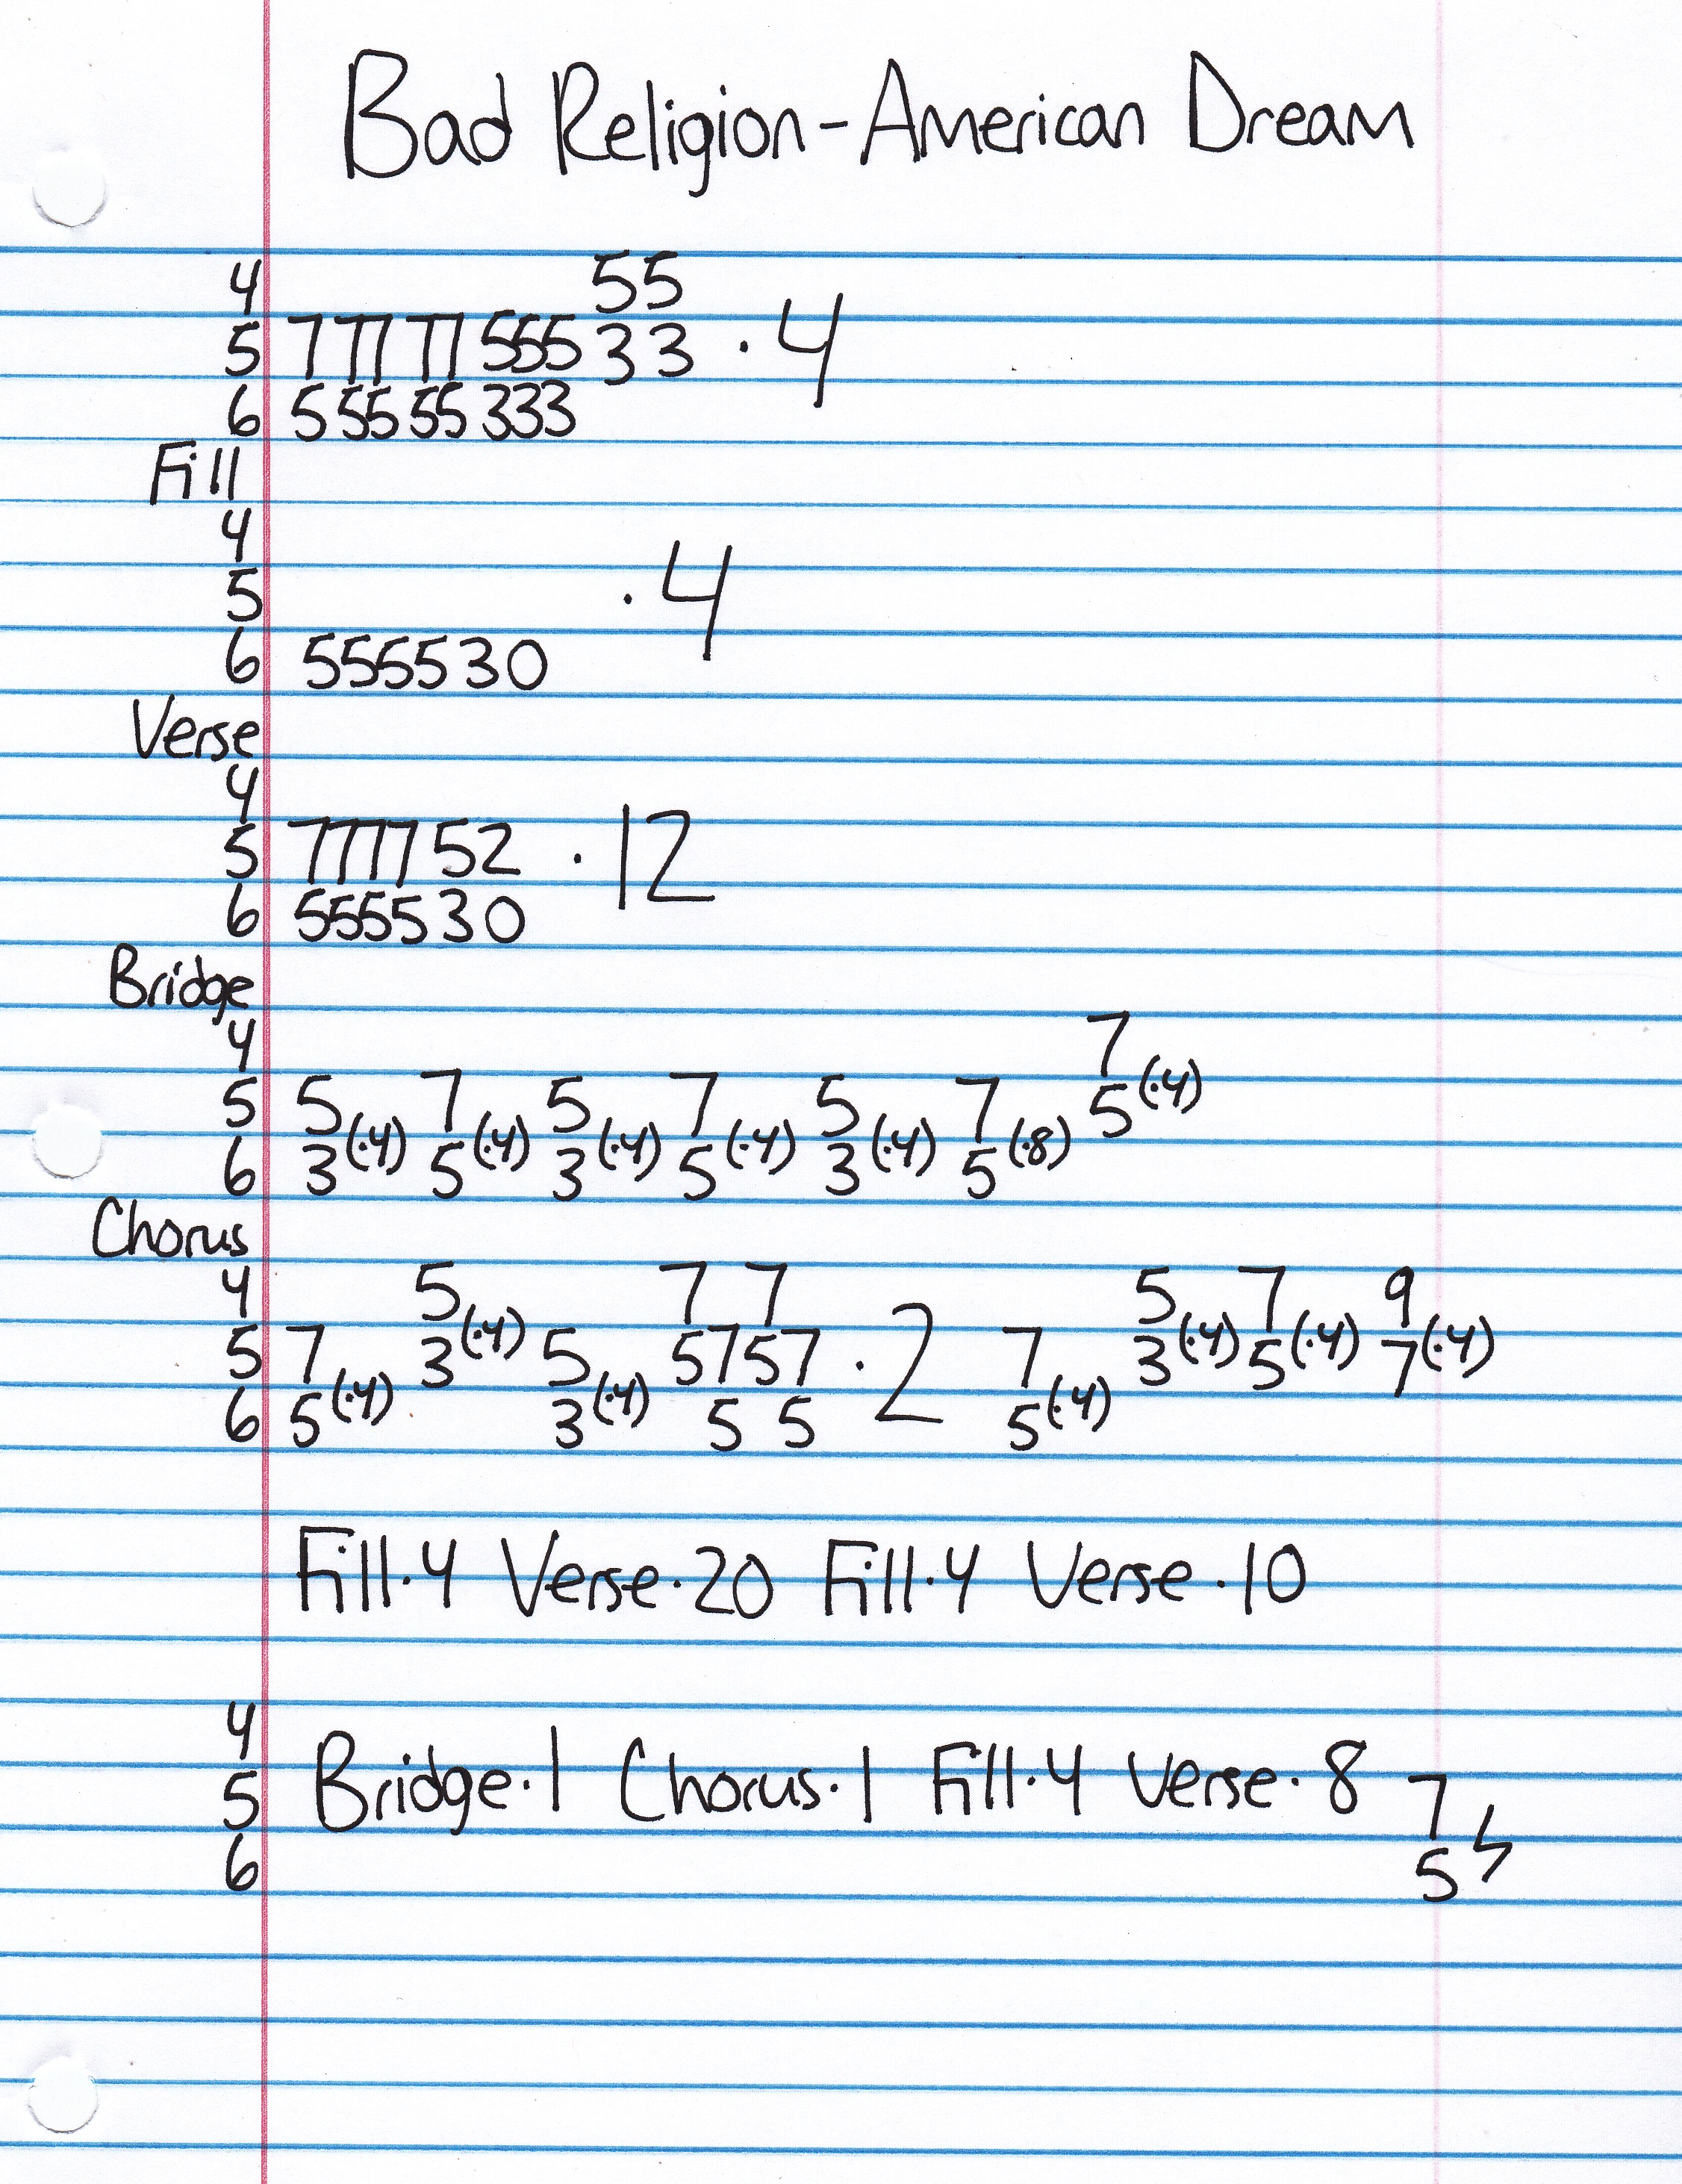 Bad Religion-American Dream
4 55
5 7 77 77 555 33 ·4
6 5 55 55 333
Fill
4
5 ·4
6 555530
Verse
4
5 777752 ·12
6 555530
Bridge
4 7
5 5 7 5 7 5 7 5(·4)
6 3(·4) 5(·4) 3(·4) 5(·4) 3(·4) 5(·8)
Chorus
4 5 7 7 5 7 9
5 7 3(·4) 5 5757 ·2 7 3(·4) 5(·4) 7(·4)
6 5(·4) 3(·4) 5 5 5(·4)
Fill·4 Verse·20 Fill·4 Verse·10
4
5 Bridge·1 Chorus·1 Fill·4 Verse·8 7
6 5